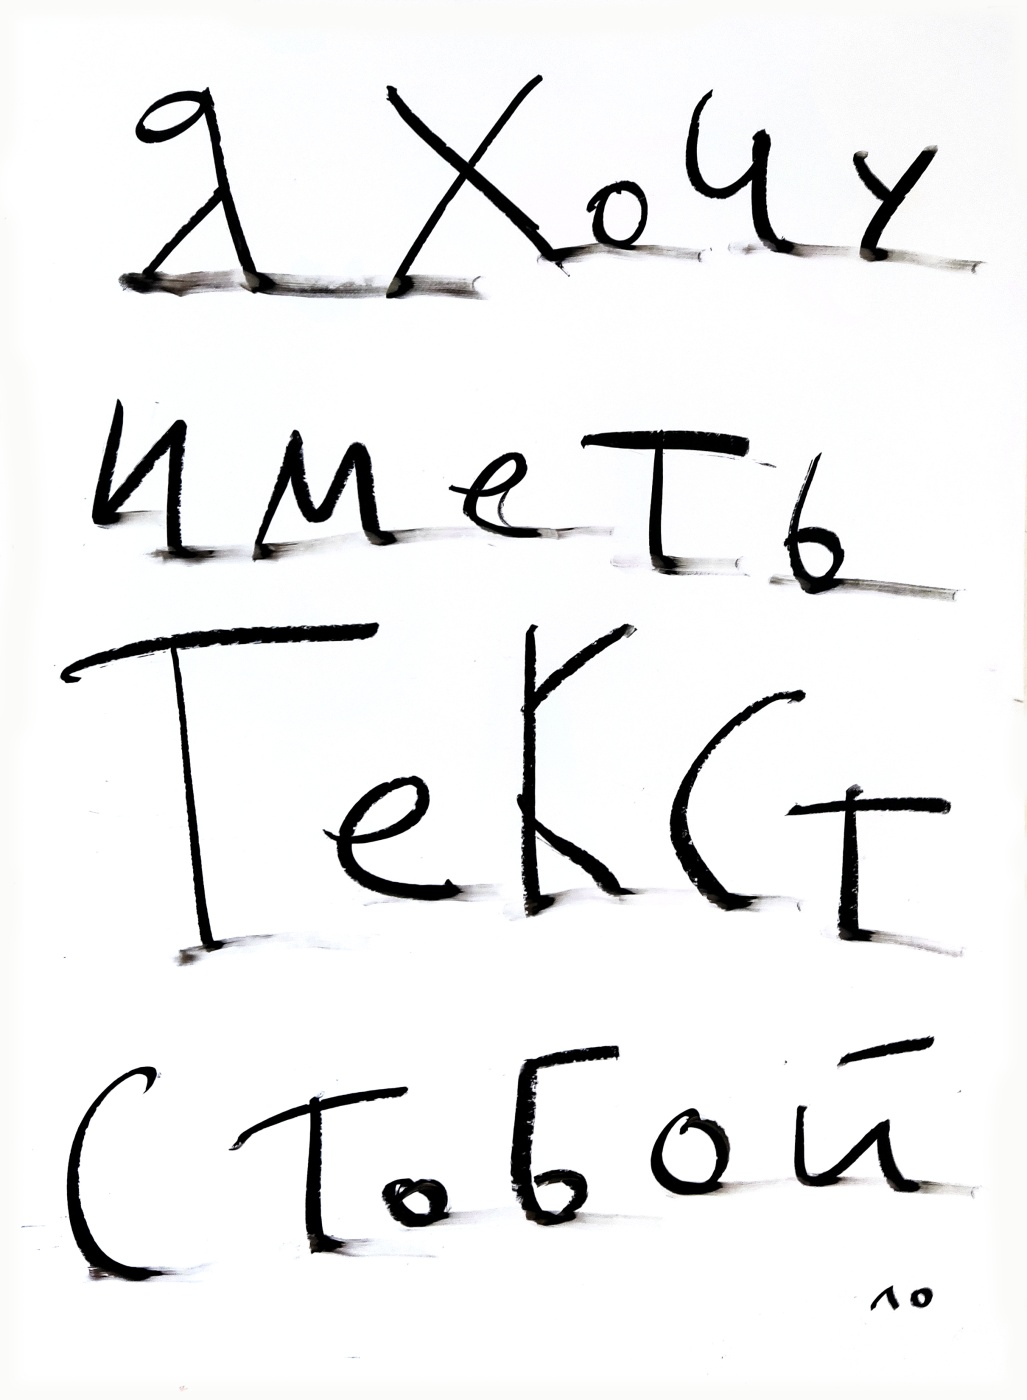 Я Хочу
иметь
Текст
с Тобой
ло